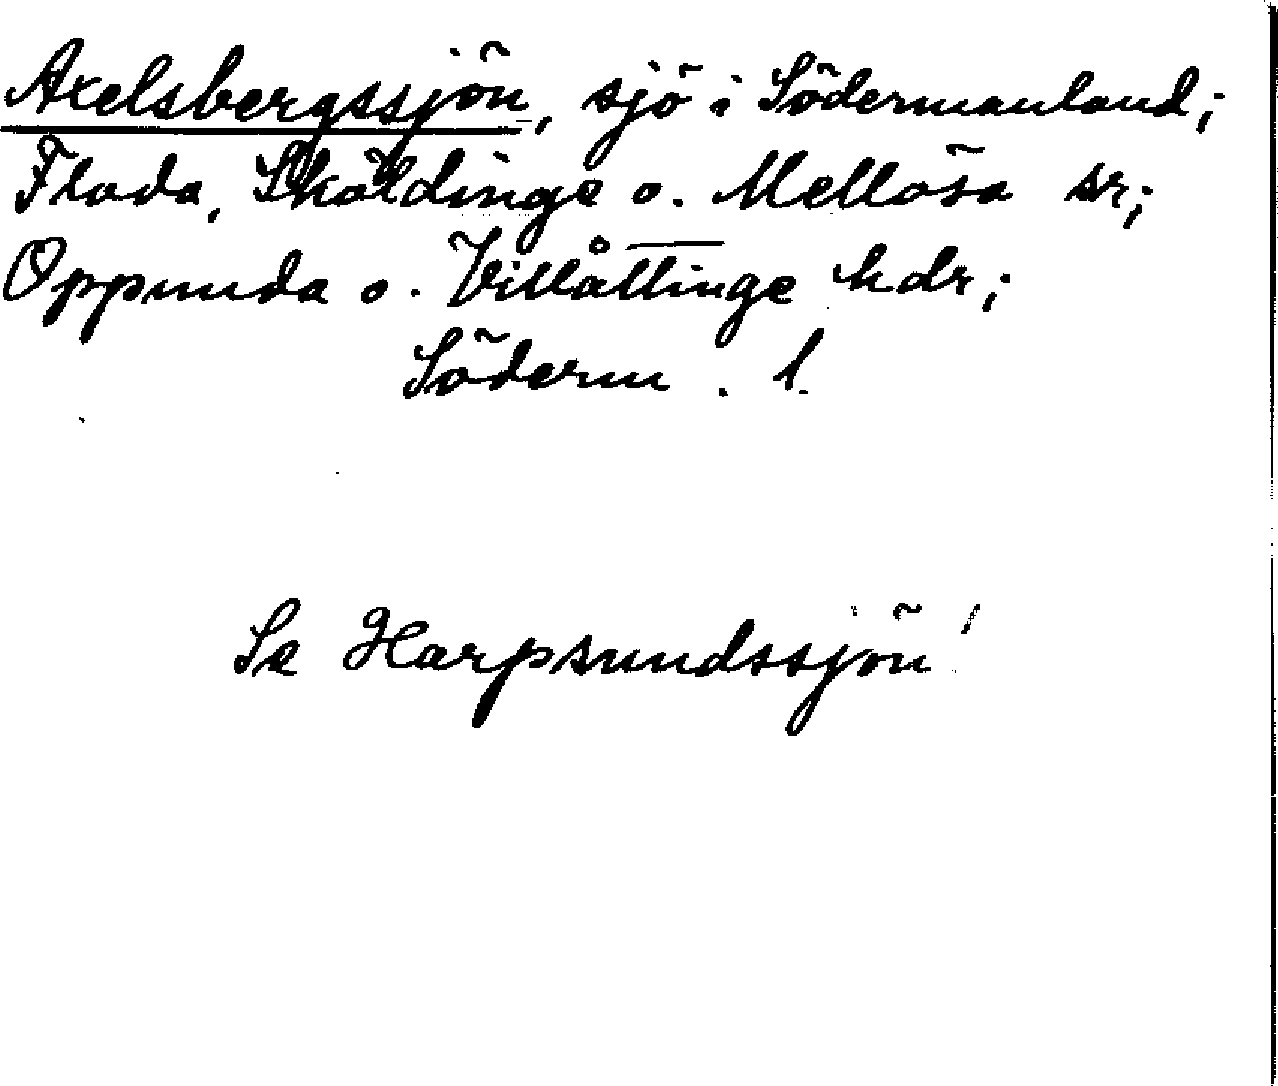 Axelsbergssjön, sjö i Södermanland;
Floda, Sköldinge o. Mellösa sr;
Oppunda o. Villåttinge hdr;
Söderm. l.
Se Harpsundssjön!